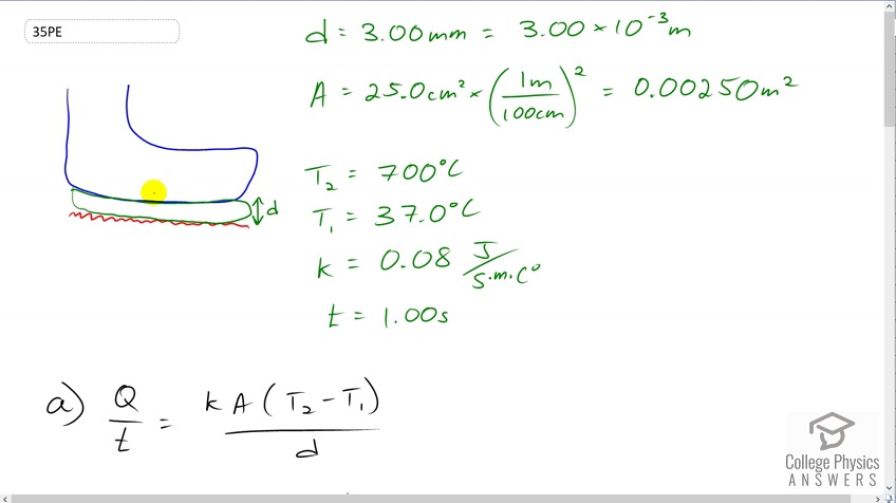 35PE
d = 3.00 mm = 3.00 × 10⁻³ m
A = 25.0 cm² × (1m/100cm)² = 0.00250 m²
T₂ = 700°C
T₁ = 37.0°C
k = 0.08 J/s·m·C°
t = 1.00 s
d
a) Q/t = kA(T₂ - T₁)/d
College Physics
ANSWERS